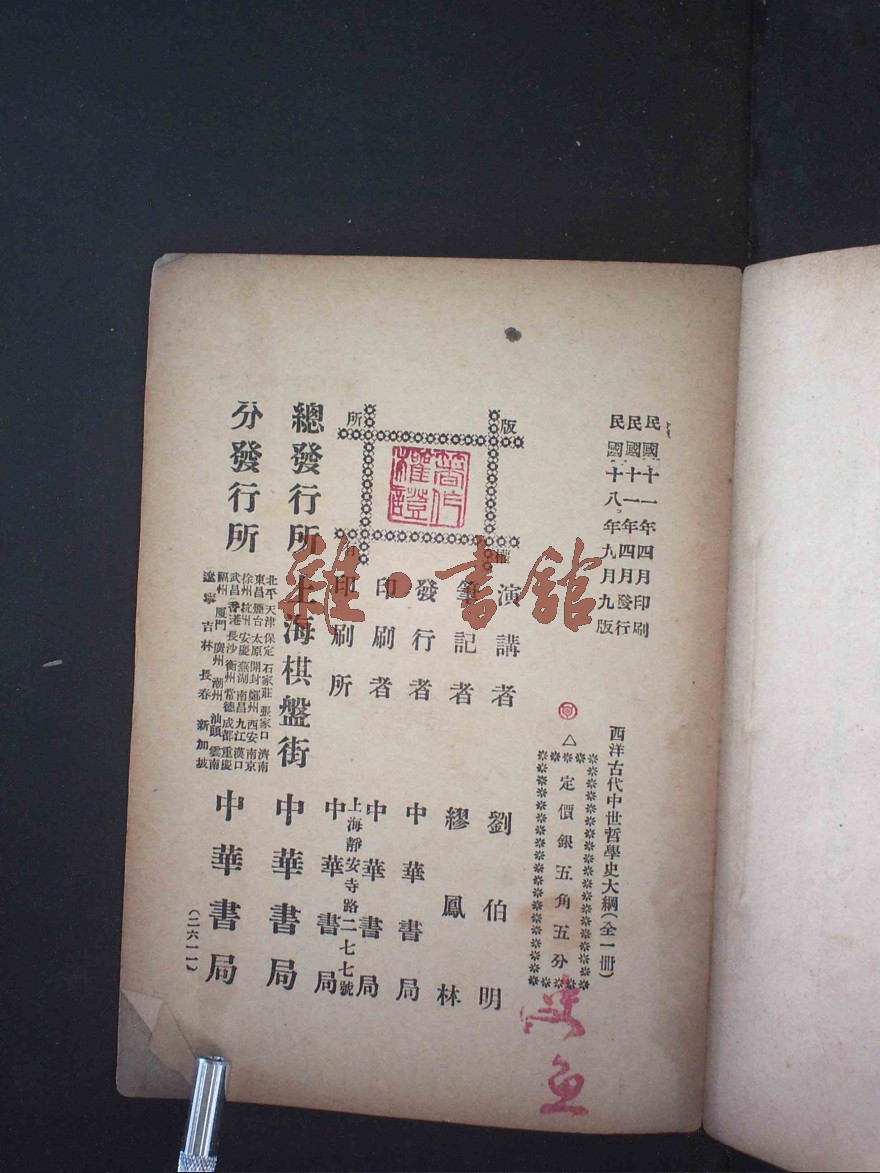 民國十一年四月印刷
民國十一年四月發行
民國十八年九月九版
西洋古代中世哲學史大綱(全一冊)
△定價銀五角五分
版權所有
著作權證
演講者 劉伯明
筆記者 繆鳳林
發行者 中華書局
印刷者 中華書局
印刷所 上海靜安寺路二七七號 中華書局
總發行所 上海棋盤街 中華書局
分發行所
北平 天津 保定 石家莊 張家口 濟南
東昌 煙台 太原 開封 鄭州 西安 南京
徐州 杭州 安慶 蕪湖 南昌 九江 漢口
武昌 香港 長沙 衡州 常德 成都 重慶
福州 廈門 廣州 潮州 汕頭 雲南
遼寧 吉林 長春 新加坡
中華書局
(二六一一)
雜·書館